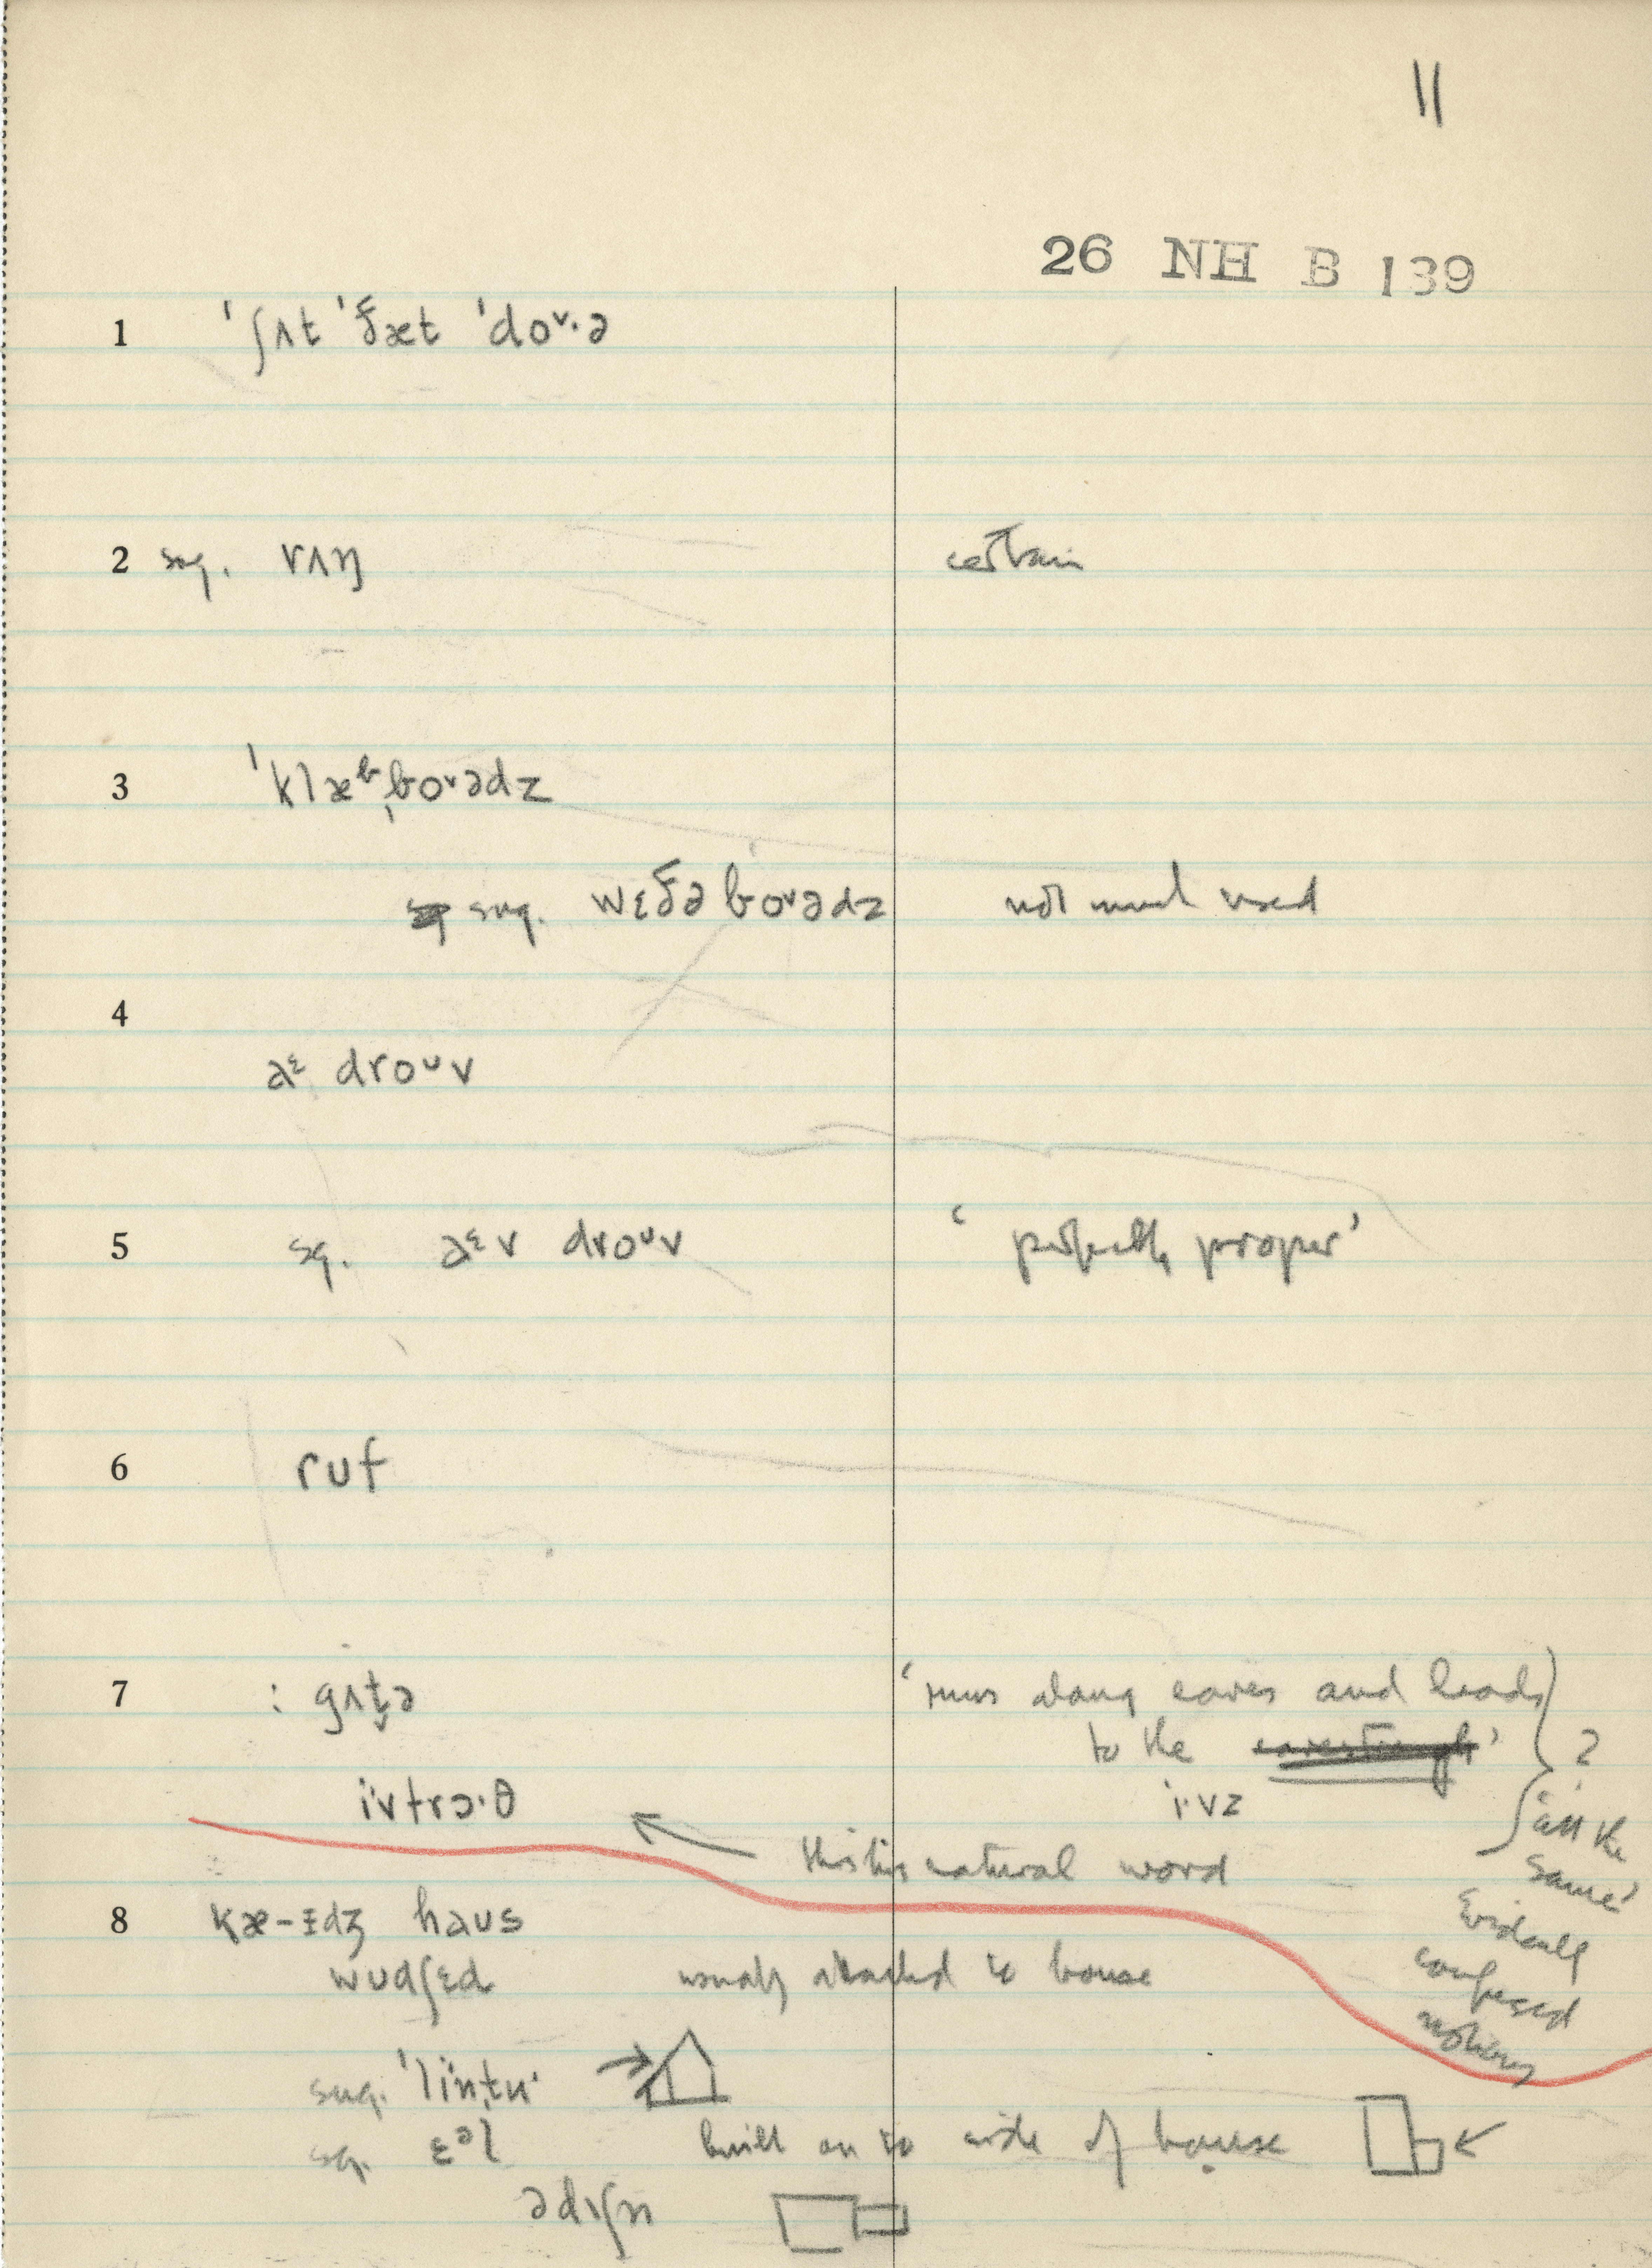 11
26 NH B 139
1 ˈʃʌt ˈðæt ˈdoᵛ·ə
2 sug. rʌŋ certain
3 ˈklæᵇˌboᵛədz
sug. wɛðəboᵛədz not much used
4
əᶤ droᵘv
5 sg. əᶤv droᵘv ‘perfectly proper’
6 ruf
7 : gʌt̬ə ‘runs along eaves and leads
to the
i·vz
ivtrɔ·θ
this is natural word
? ‘all the
same’
Evidently
confused
notions
8 kæ-ɪdʒ haus
wudʃɛd usually attached to house
sug. ˈlintu·
sg. ɛᵊl built on to side of house
ədɪʃn